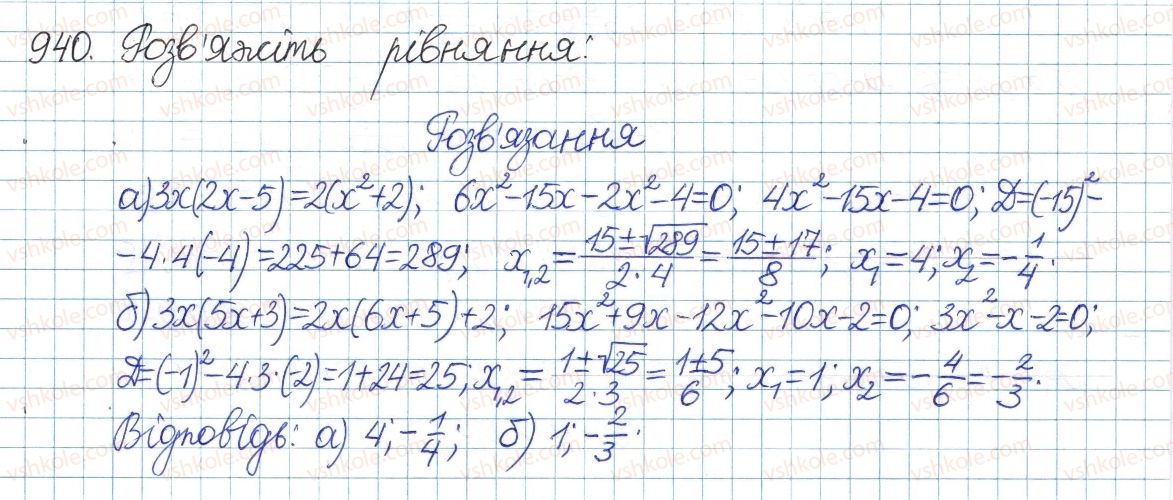 940. Розв'яжіть рівняння:
Розв'язання
а) 3x(2x-5)=2(x²+2); 6x²-15x-2x²-4=0; 4x²-15x-4=0; Д=(-15)²-
-4·4(-4)=225+64=289; x₁,₂=(15±√289)/(2·4)=(15±17)/8; x₁=4; x₂=-1/4.
б) 3x(5x+3)=2x(6x+5)+2; 15x²+9x-12x²-10x-2=0; 3x²-x-2=0;
Д=(-1)²-4·3·(-2)=1+24=25; x₁,₂=(1±√25)/(2·3)=(1±5)/6; x₁=1; x₂=-4/6=-2/3.
Відповідь: а) 4; -1/4; б) 1; -2/3.